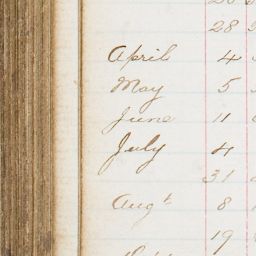 28
April 4
May 5
June 11
July 4
31
Augt 8
19